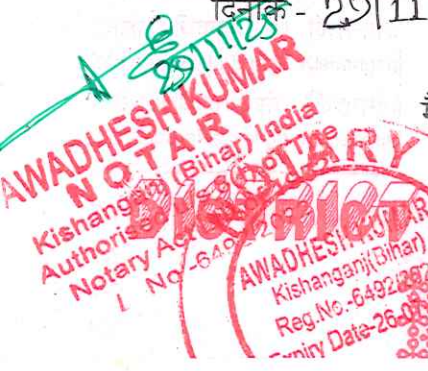 दिनांक - 29/11
29/11/23
AWADHESH KUMAR
NOTARY
Kishanganj (Bihar) India
Authoris
The
Notary Ac
No-649
NOTARY
DISTRICT
AWADHESH KUMAR
Kishanganj(Bihar)
Reg.No.-6492/202
Expiry Date-26-0